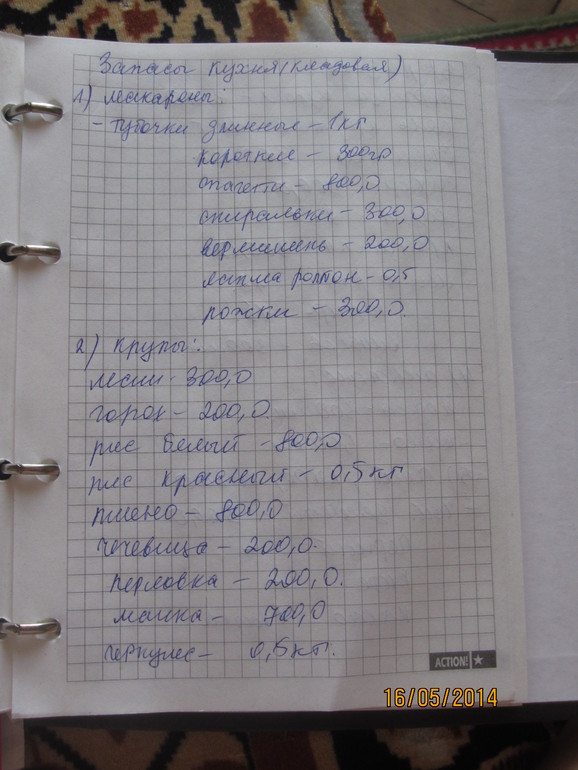 Запасы кухня (кладовая)
1) макароны:
- трубочки длинные - 1кг
короткие - 300гр
спагетти - 800,0
спиральки - 300,0
вермишель - 200,0
лапша ролтон - 0,5
рожки - 300,0.
2) крупы:
маш - 300,0
горох - 200,0.
рис белый - 800,0
рис красный - 0,5 кг
пшено - 800,0
чечевица - 200,0.
перловка - 200,0.
манка - 700,0
геркулес - 0,5кг.
ACTION!
16/05/2014